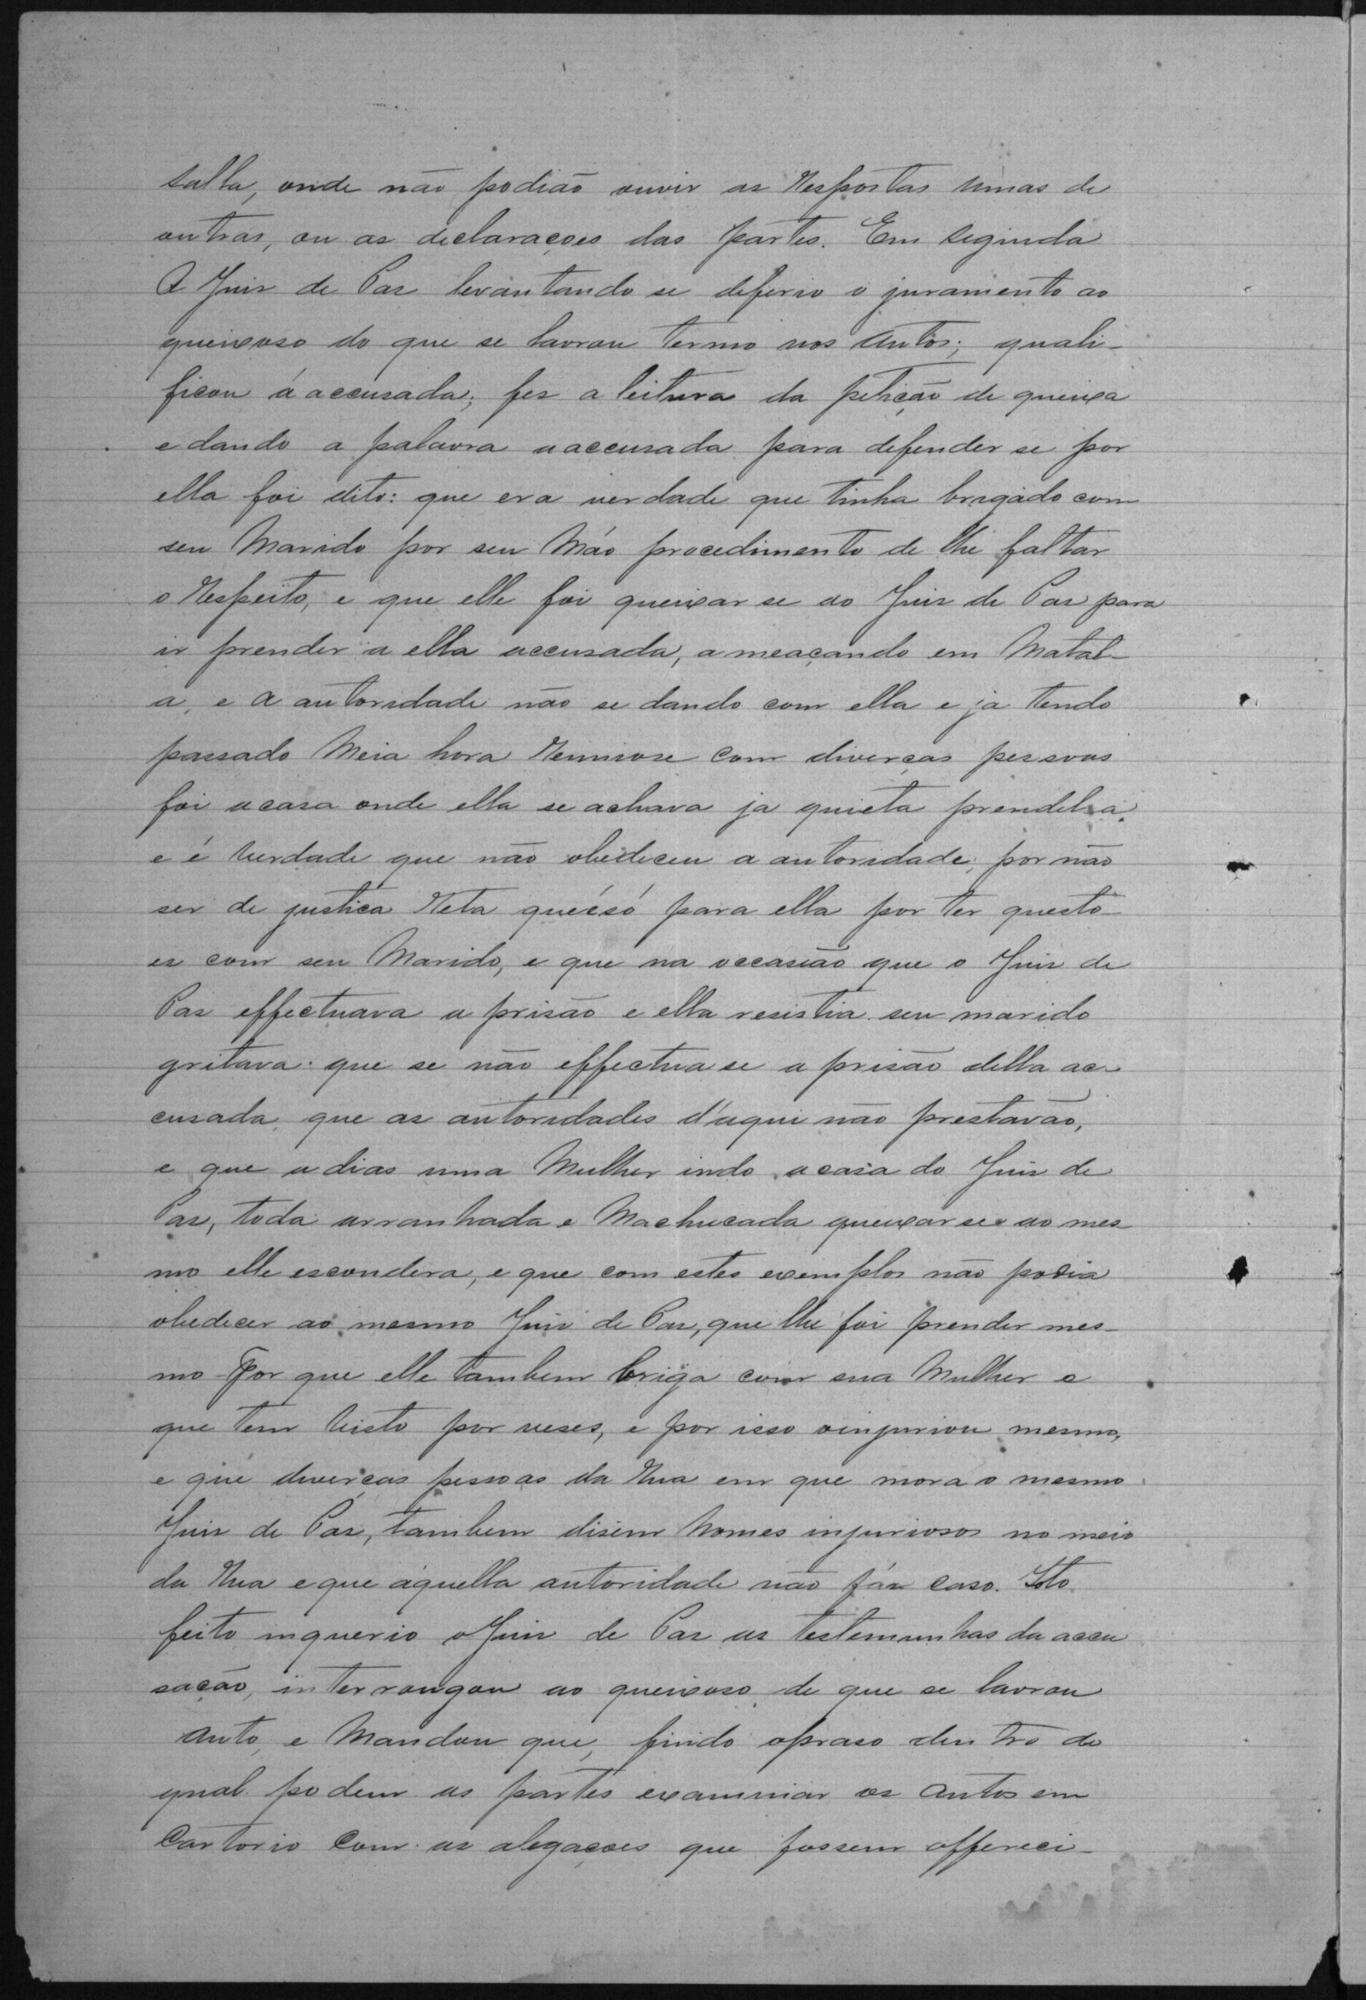 salla, onde não podião ouvir as Respostas umas de
outras, ou as declarações das partes. Em seginda
O Juiz de Paz levantando se deferio o juramento ao
queixoso do que se lavrou termo nos autos; quali-
ficou á accusada; fez a leitura da petição de queixa
e dando a palavra a accusada para defender se por
ella foi dito: que era verdade que tinha brigado com
seu Marido por seu Máo procedimento de lhe faltar
o Respeito, e que elle foi queixar se ao Juiz de Paz para
ir prender a ella accusada, ameaçando em Matal-
a, e a autoridade não se dando com ella e ja tendo
passado Meia hora Reuniose com diverças pessoas
foi a casa onde ella se achava ja quieta prendel-a,
e é verdade que não obedeceu a autoridade, por não
ser de justiça Reta que é só para ella por ter questo-
es com seu Marido, e que na occasião que o Juiz de
Paz effectuava a prisão e ella resistia seu marido
gritava que se não effectuase a prisão della ac-
cusada, que as autoridades d'aqui não prestavão,
e que a dias uma Mulher indo a casa do Juiz de
Paz, toda arranhada e Machucada queixar se ao mes-
mo elle escondera, e que com estes exemplos não podia
obedecer ao mesmo Juiz de Paz, que lhe foi prender mes-
mo Por que elle tambem briga com sua Mulher e
que tem visto por veses, e por isso o injuriou mesmo,
e que diverças pessoas da Rua em que mora o mesmo
Juiz de Páz, tambem disem Nomes injuriosos no meio
da Rua e que áquella autoridade não fáz caso. Isto
feito inquerio o Juiz de Paz as testemunhas da accu
sação, interrougou ao queixoso, de que se lavrou
auto, e Mandou que, findo o praso dentro do
qual podem as partes examinar os autos em
Cartorio com as alegações que fossem offereci-